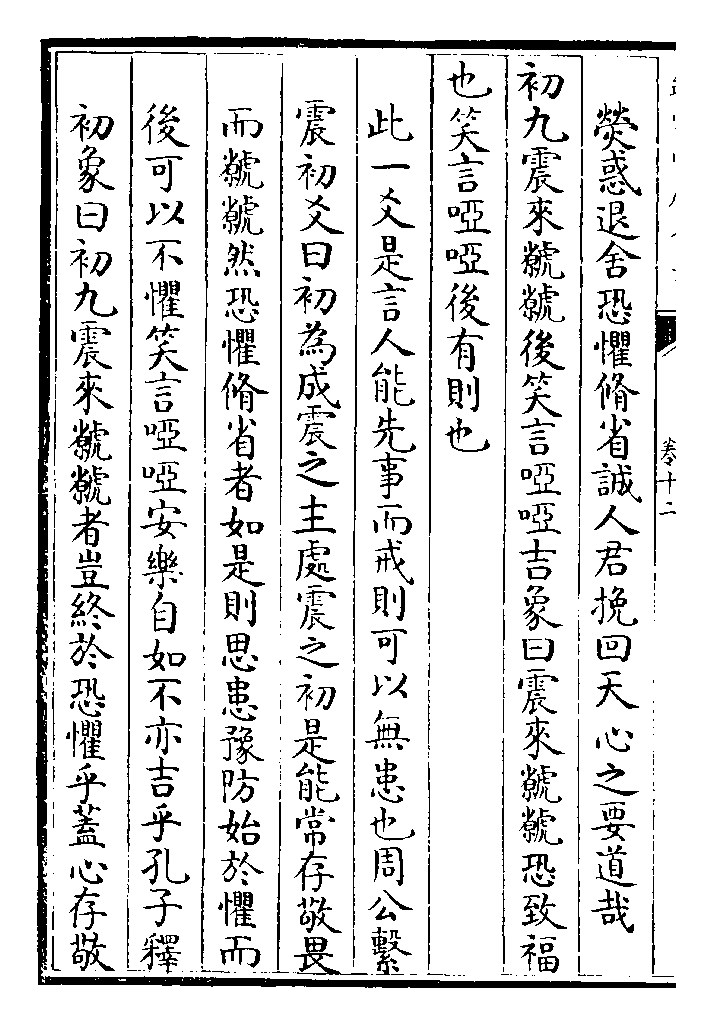 熒惑退舍恐懼脩省誠人君挽回天心之要道哉
初九震來虩虩後笑言啞啞吉象曰震來虩虩恐致福
也笑言啞啞後有則也
此一爻是言人能先事而戒則可以無患也周公繫
震初爻曰初為成震之主處震之初是能常存敬畏
而虩虩然恐懼脩省者如是則思患豫防始於懼而
後可以不懼笑言啞啞安樂自如不亦吉乎孔子釋
初象曰初九震來虩虩者豈終於恐懼乎蓋心存敬
卷十二